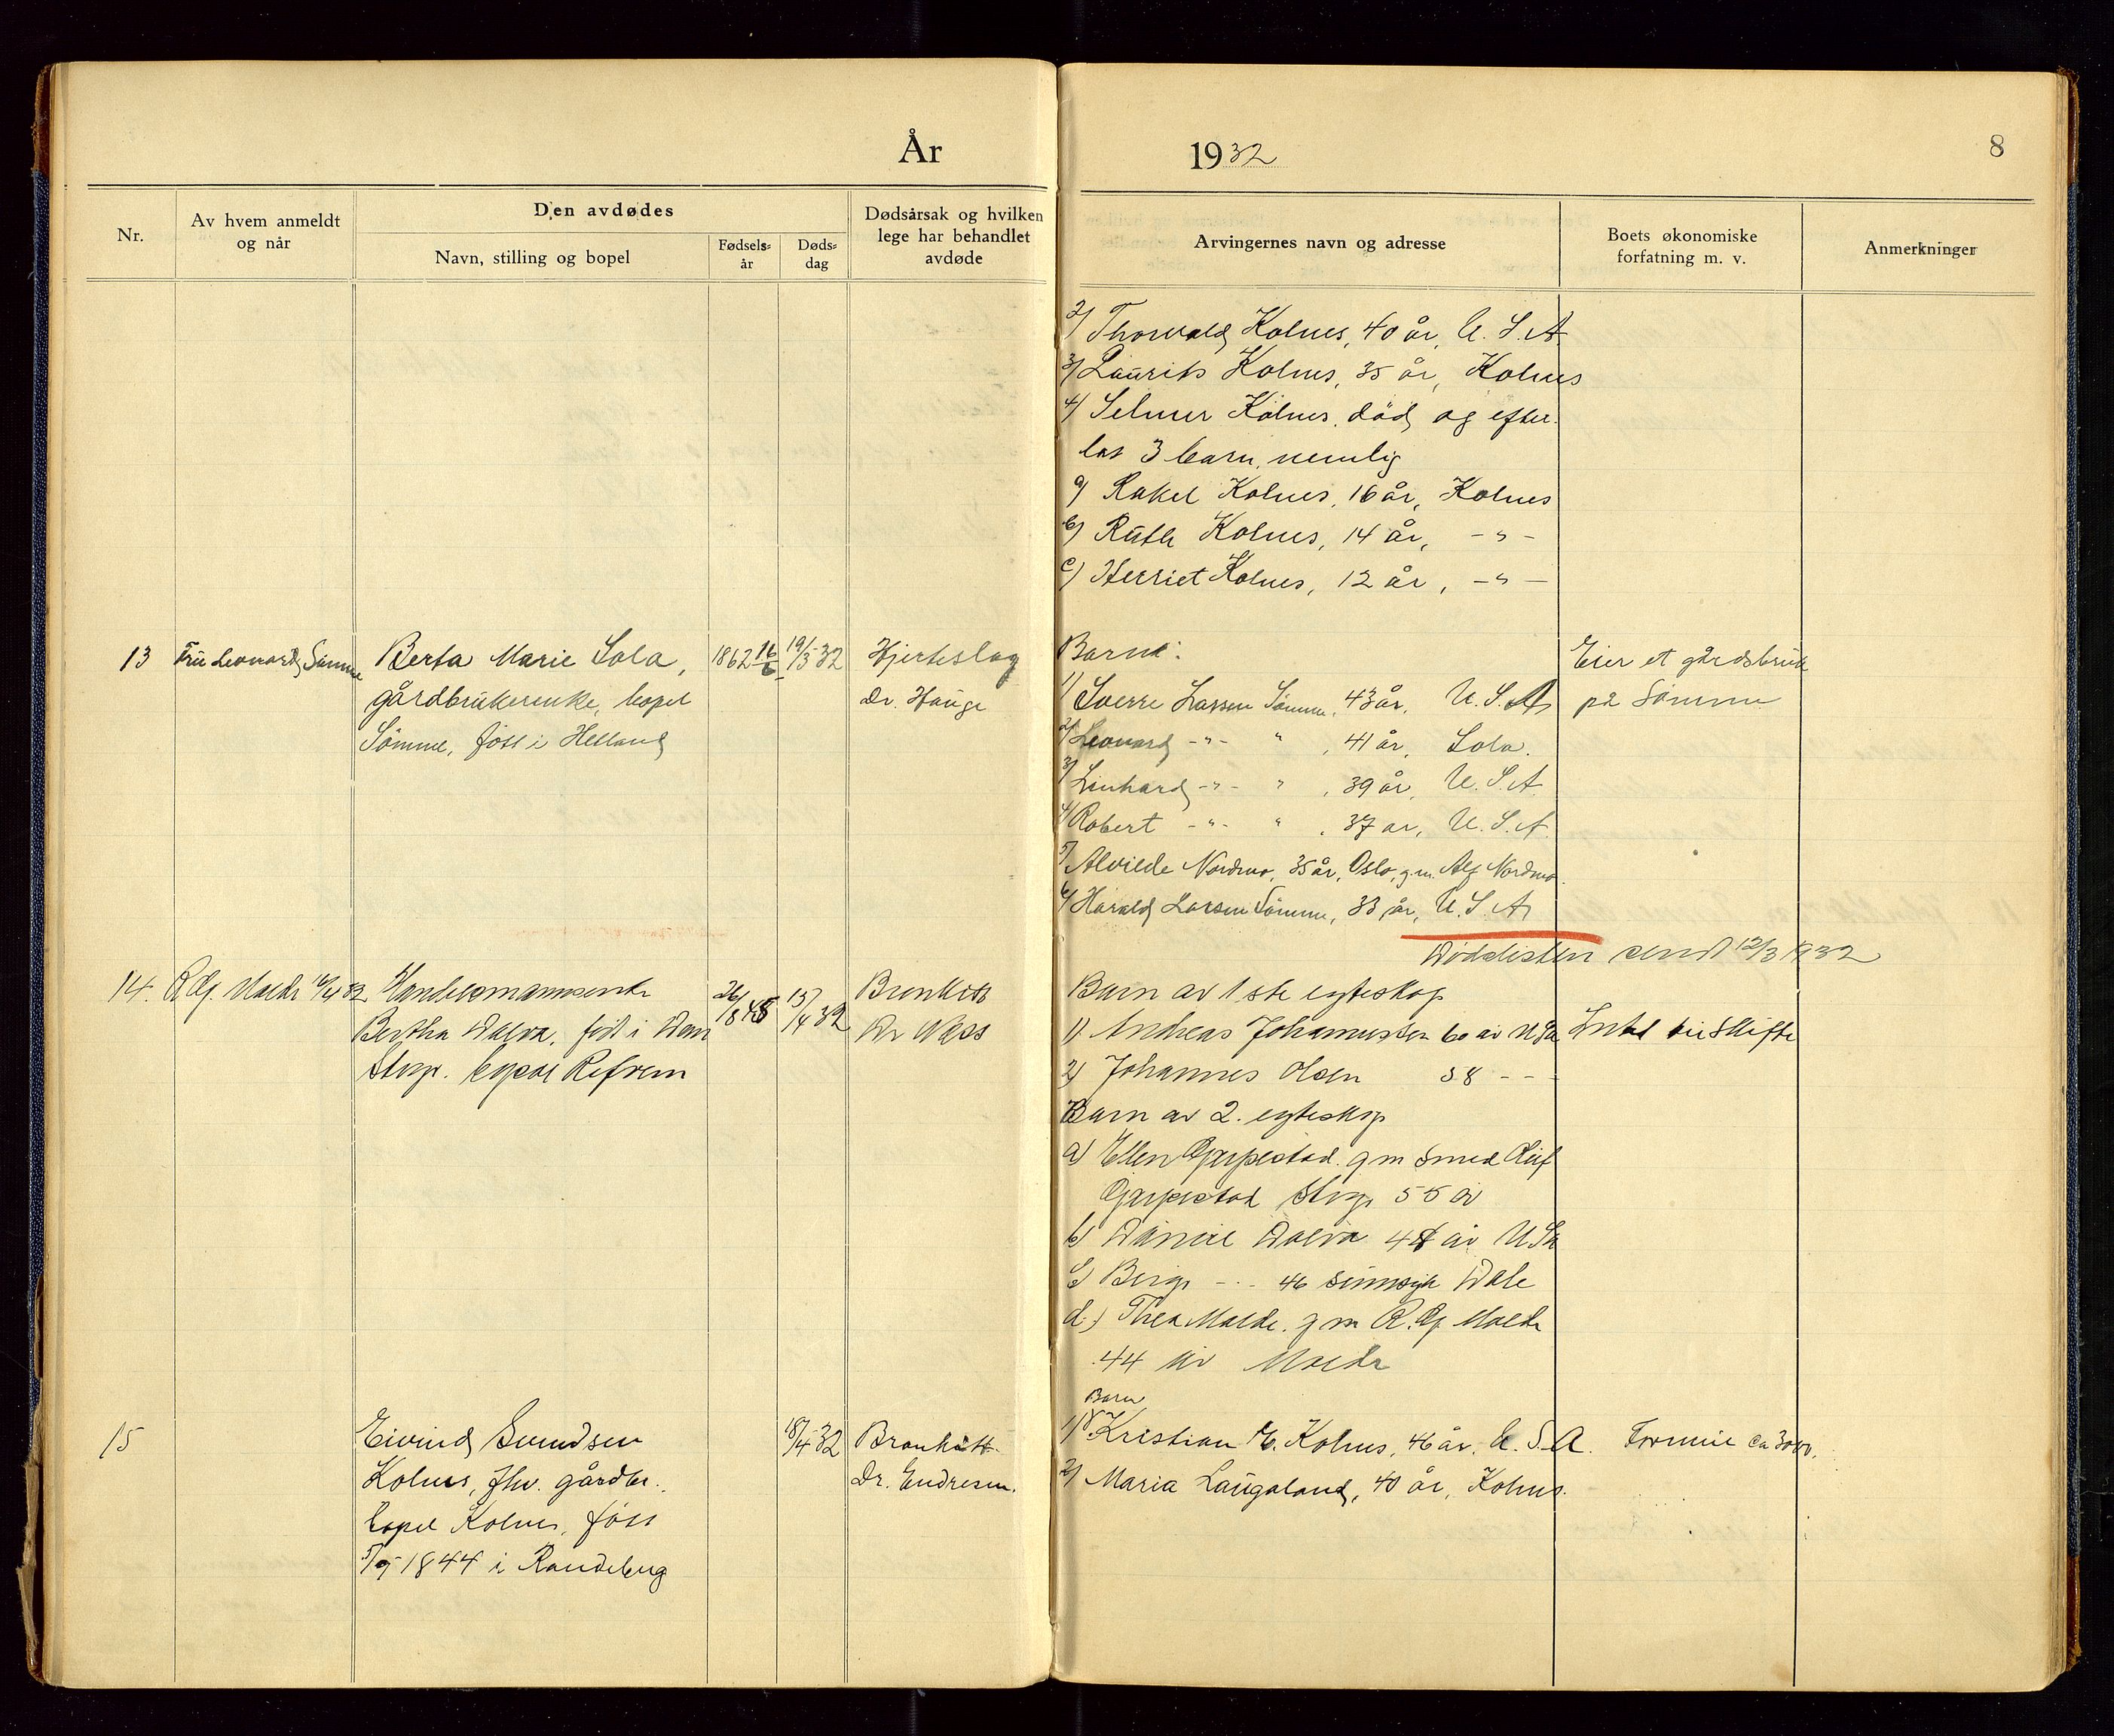 År 1932
8
Nr.
Av hvem anmeldt
og når
Den avdødes
Navn, stilling og bopel
Fødsels-
år
Døds-
dag
Dødsårsak og hvilken
lege har behandlet
avdøde
Arvingernes navn og adresse
Boets økonomiske
forfatning m. v.
Anmerkninger
2/ Thorvald Kolnes, 40 år, U. S. A.
3/ Laurits Kolnes, 35 år, Kolnes
4/ Selmer Kolnes, död og efter-
lot 3 barn, nemlig
a/ Rakel Kolnes, 16 år, Kolnes
b/ Ruth Kolnes, 14 år, - " -
c/ Herriet Kolnes, 12 år, - " -
13 Fru Leonard Sömme
Berta Marie Sola,
gårdbrukerenke, bopel
Sömme, föss i Helland
1862 16/6
19/3 32
Hjerteslag
Dr. Hauge
Barn:
1/ Sverre Larsen Sömme, 43 år, U. S. A
2/ Leonard - " - " , 41 år, Sola.
3/ Linhard - " - " , 39 år, U. S. A
4/ Robert - " - " , 37 år, U. S. A.
5/ Alvilde Nordmo, 35 år, Oslo, g.m. Alf Nordmo.
6/ Harald Larsen Sömme, 33 år, U. S. A
Eier et gårdsbruk
på Sömme
Dødslisten sendt 12/3 1932
14. Malde 16/4 32
Bertha Dalva, født i
bopel Refsnes
26/8 48
15/4 32
Bronkitt
Dr Næss
Barn av 1ste egteskap
1) Andreas Johannessen 60 år USA
2) Johannes Olsen 58 - -
Barn av 2. egteskap
a) Ellen Grypestad. g m smed
Grypestad Stvgr 55 år
b) Daniel Dalva 48 år USA
c) Birger - - 46 sinnsyk Dale
d.) Thea Malde. g m R. Malde
44 år Malde
Intet til Skifte
15
Eivind Svendsen
Kolnes, fhv. gårdbr.,
bopel Kolnes, föss
5/9 1844 i Randeberg
18/4 32
Bronkitt.
Dr. Endresen.
Barn
1/ Kristian E. Kolnes, 46 år, U. S. A.
2/ Maria Laugaland, 40 år, Kolnes.
Formue ca 3000.